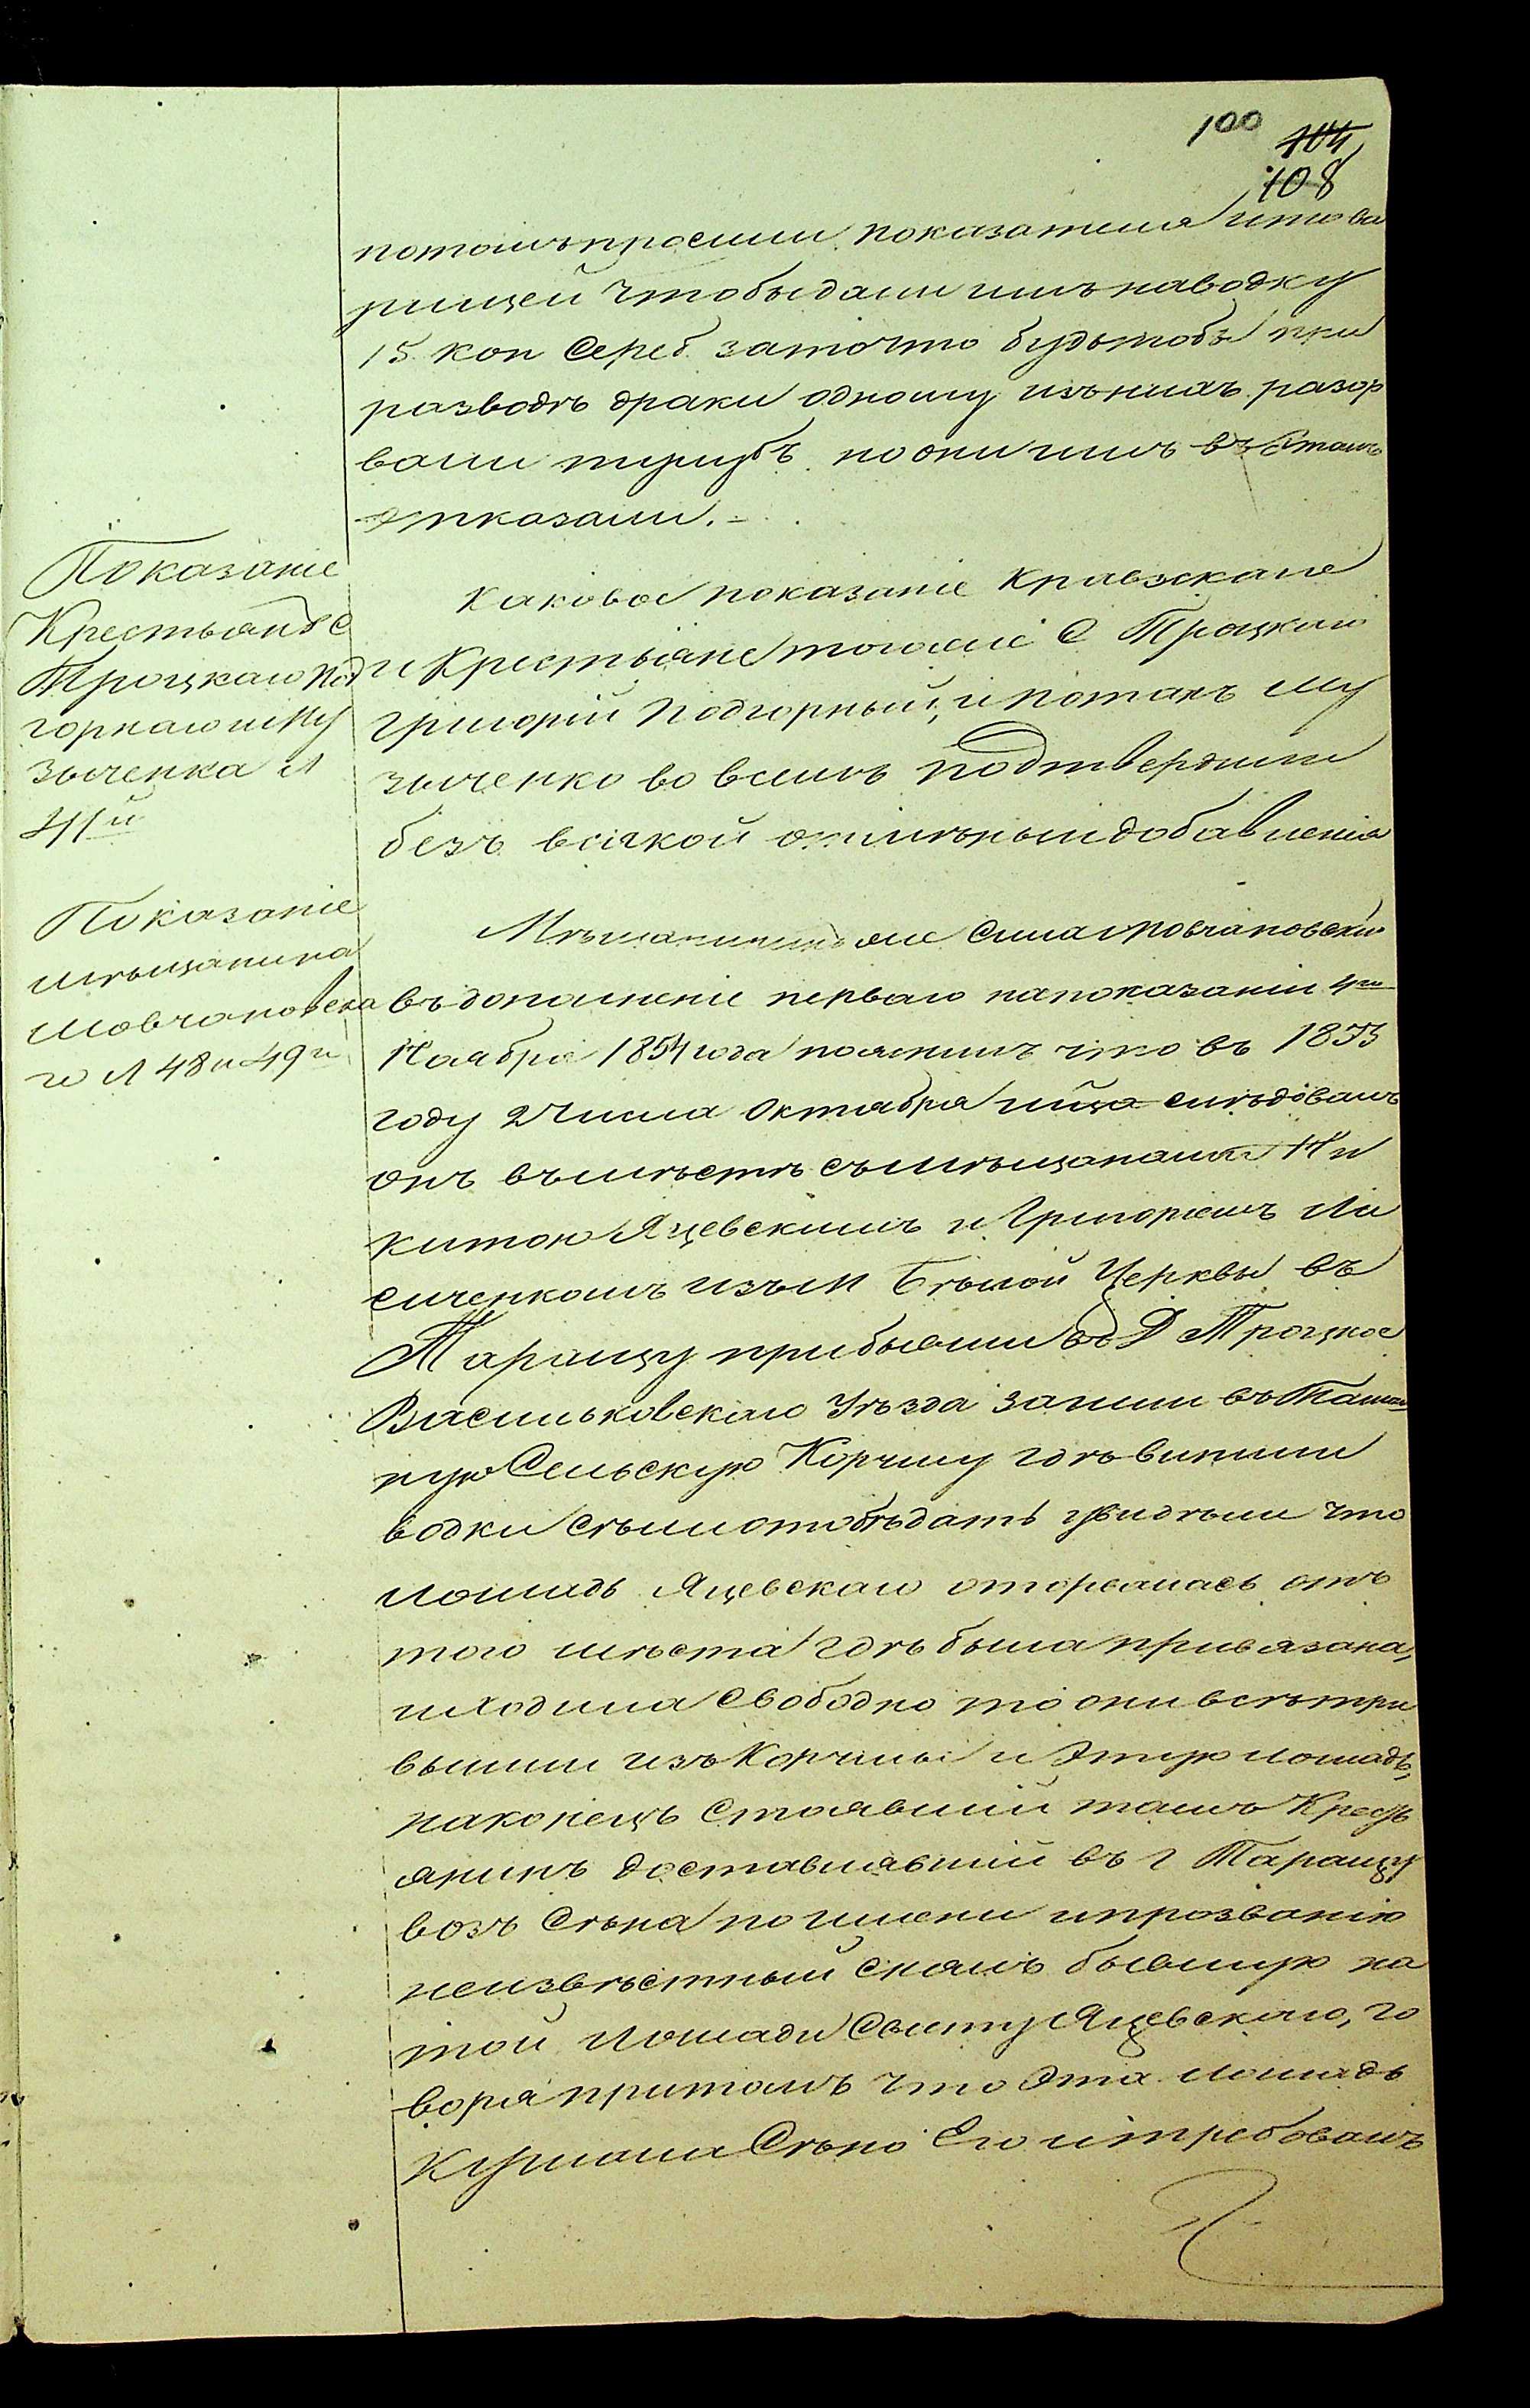 100
104
108
потомъ просили показателя и това
рищей чтобы дали имъ на водку
15 коп Сереб. за то что будьтобы при
разводѣ драки одному изъ нихъ разор
вали тулубъ но они имъ въ Етомъ
отказали. -
Показаніе
Крестьянъ С
Троцкаго Под
горнаго и Му
зыченка л
41й
Каковое показаніе
и Крестьяне того же С Троцкаго
Григорій Подгорный, и Потапъ Му
зыченко во всемъ подтвердили
безъ всякой отмѣны и добавленія
Показаніе
мѣщанина
Мовчановска
го л 48 и 49й
Мѣщанинъ же Сила Мовчановскій
въ дополненіе перваго на показаніи 4го
Ноября 1854 года пояснилъ что въ 1853
году 2 Числа Октября мца слѣдовалъ
онъ вмѣстѣ съ мѣщанами Ни
китою Яцевскимъ и Григоріемъ Ли
сиченкомъ изъ М Бѣлой Церквы въ
Таращу прибывши въ Д Троцкое
Васильковскаго Уѣзда зашли въ Тамош
ную Сельскую Корчму гдѣ випили
водки сѣли отобѣдать увидѣли что
лошадь Яцевскаго оторвалась отъ
того мѣста гдѣ была привязана,
и ходила свободно то они всѣ три
вышли изъ Корчмы и Этую лошадь,
наконецъ Стоявшій тамъ Кресть
янинъ доставлявшій въ г Таращу
возъ Сѣна по имени и прозванію
неизвѣстный снялъ бывшую на
той лошади Свиту Яцевскаго, го
воря притомъ что Эта лошадь
кушала Сѣно Его и требовалъ